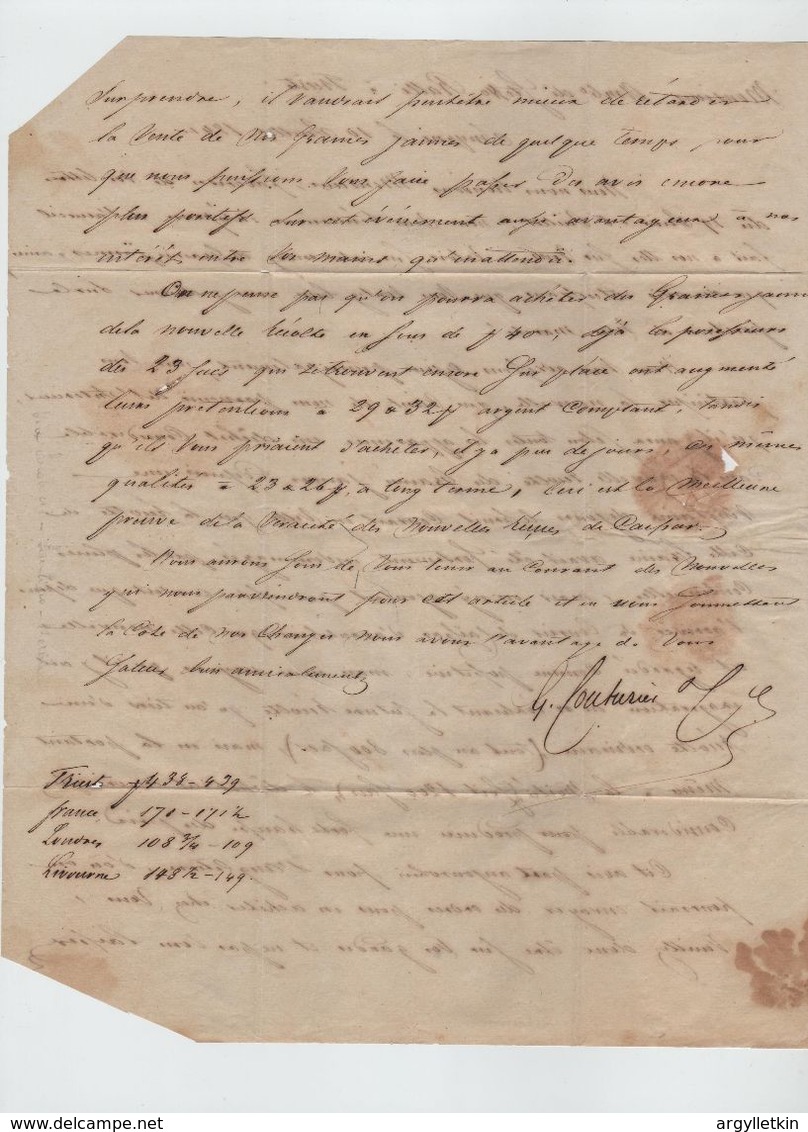 surprendre, il vaudrait peutêtre mieux de retarder
la Vente de Vos Graines jaunes de quelque temps pour
que nous puissions Vous faire passer des avis encore
plus positifs sur cet événement aussi avantageux à nos
intérêts entre Vos mains qu'inattendu.
On ne pense pas qu'on pourra acheter des Graines jaunes
de la nouvelle récolte en sus de p 40, déjà les possesseurs
des 23 sacs qui se trouvent encore sur place ont augmenté
leurs pretentions à 29 a 32 p argent Comptant, tandis
qu'ils Vous priaient d'acheter, il y a peu de jours, ces mêmes
qualités a 23 a 26 p, a long terme, Ceci est la Meilleure
preuve de la Veracité des Nouvelles reçues de Caissar.
Nous aurons soin de Vous tenir au Courant des Nouvelles
qui nous parviendront pour cet article et en Vous soumettant
la Côte de nos Changes nous avons l'avantage de Vous
Saluer bien amicalement
G. Couturier & Cie
Trieste f 438 - 439
france 170 - 171 ½
Londres 108 3/4 - 109
Livourne 148 ½ - 149.
argylletkin